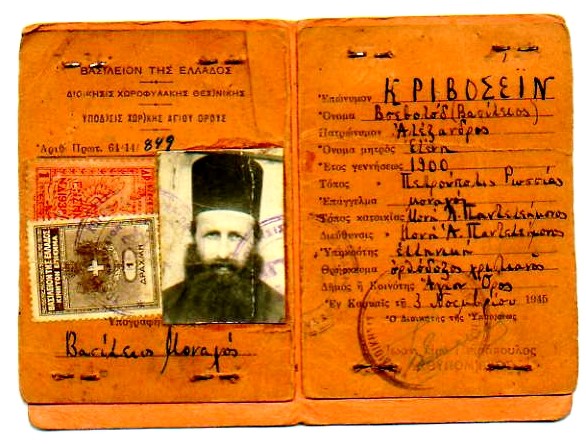 ΒΑΣΙΛΕΙΟΝ ΤΗΣ ΕΛΛΑΔΟΣ
ΔΙΟΙΚΗΣΙΣ ΧΩΡΟΦΥΛΑΚΗΣ ΘΕΣ)ΝΙΚΗΣ
ΥΠΟΔ)ΣΙΣ ΧΩΡ)ΚΗΣ ΑΓΙΟΥ ΟΡΟΥΣ
Ἀριθ. Πρωτ. 61-14/ 849
ΒΑΣΙΛΕΙΟΝ ΤΗΣ ΕΛΛΑΔΟΣ
ΚΙΝΗΤΟΝ ΕΠΙΣΗΜΑ
1
ΔΡΑΧΜΗ
Ὑπογραφὴ
Βασίλειος Μοναχός
Ἐπώνυμον ΚΡΙΒΟΣΕΪΝ
Ὄνομα Βσεβολὸδ (Βασίλειος)
Πατρώνυμον Ἀλέξανδρος
Ὄνομα μητρὸς
Ἔτος γεννήσεως 1900
Τόπος » Πετρούπολις Ρωσσίας
Ἐπάγγελμα μοναχὸς
Τόπος κατοικίας Μονὴ Ἁ. Παντελεήμονος
Διεύθυνσις » Μονὴ Ἁ. Παντελεήμονος
Ὑπηκοότης ἑλληνικὴ
Θρήσκευμα ὀρθόδοξος χριστιανὸς
Δῆμος ἢ Κοινότης Ἅγιον Ὄρος
Ἐν Καρυαῖς τῇ 3 Νοεμβρίου 1945
Ὁ Διοικητὴς τῆς Ὑπ)σεως